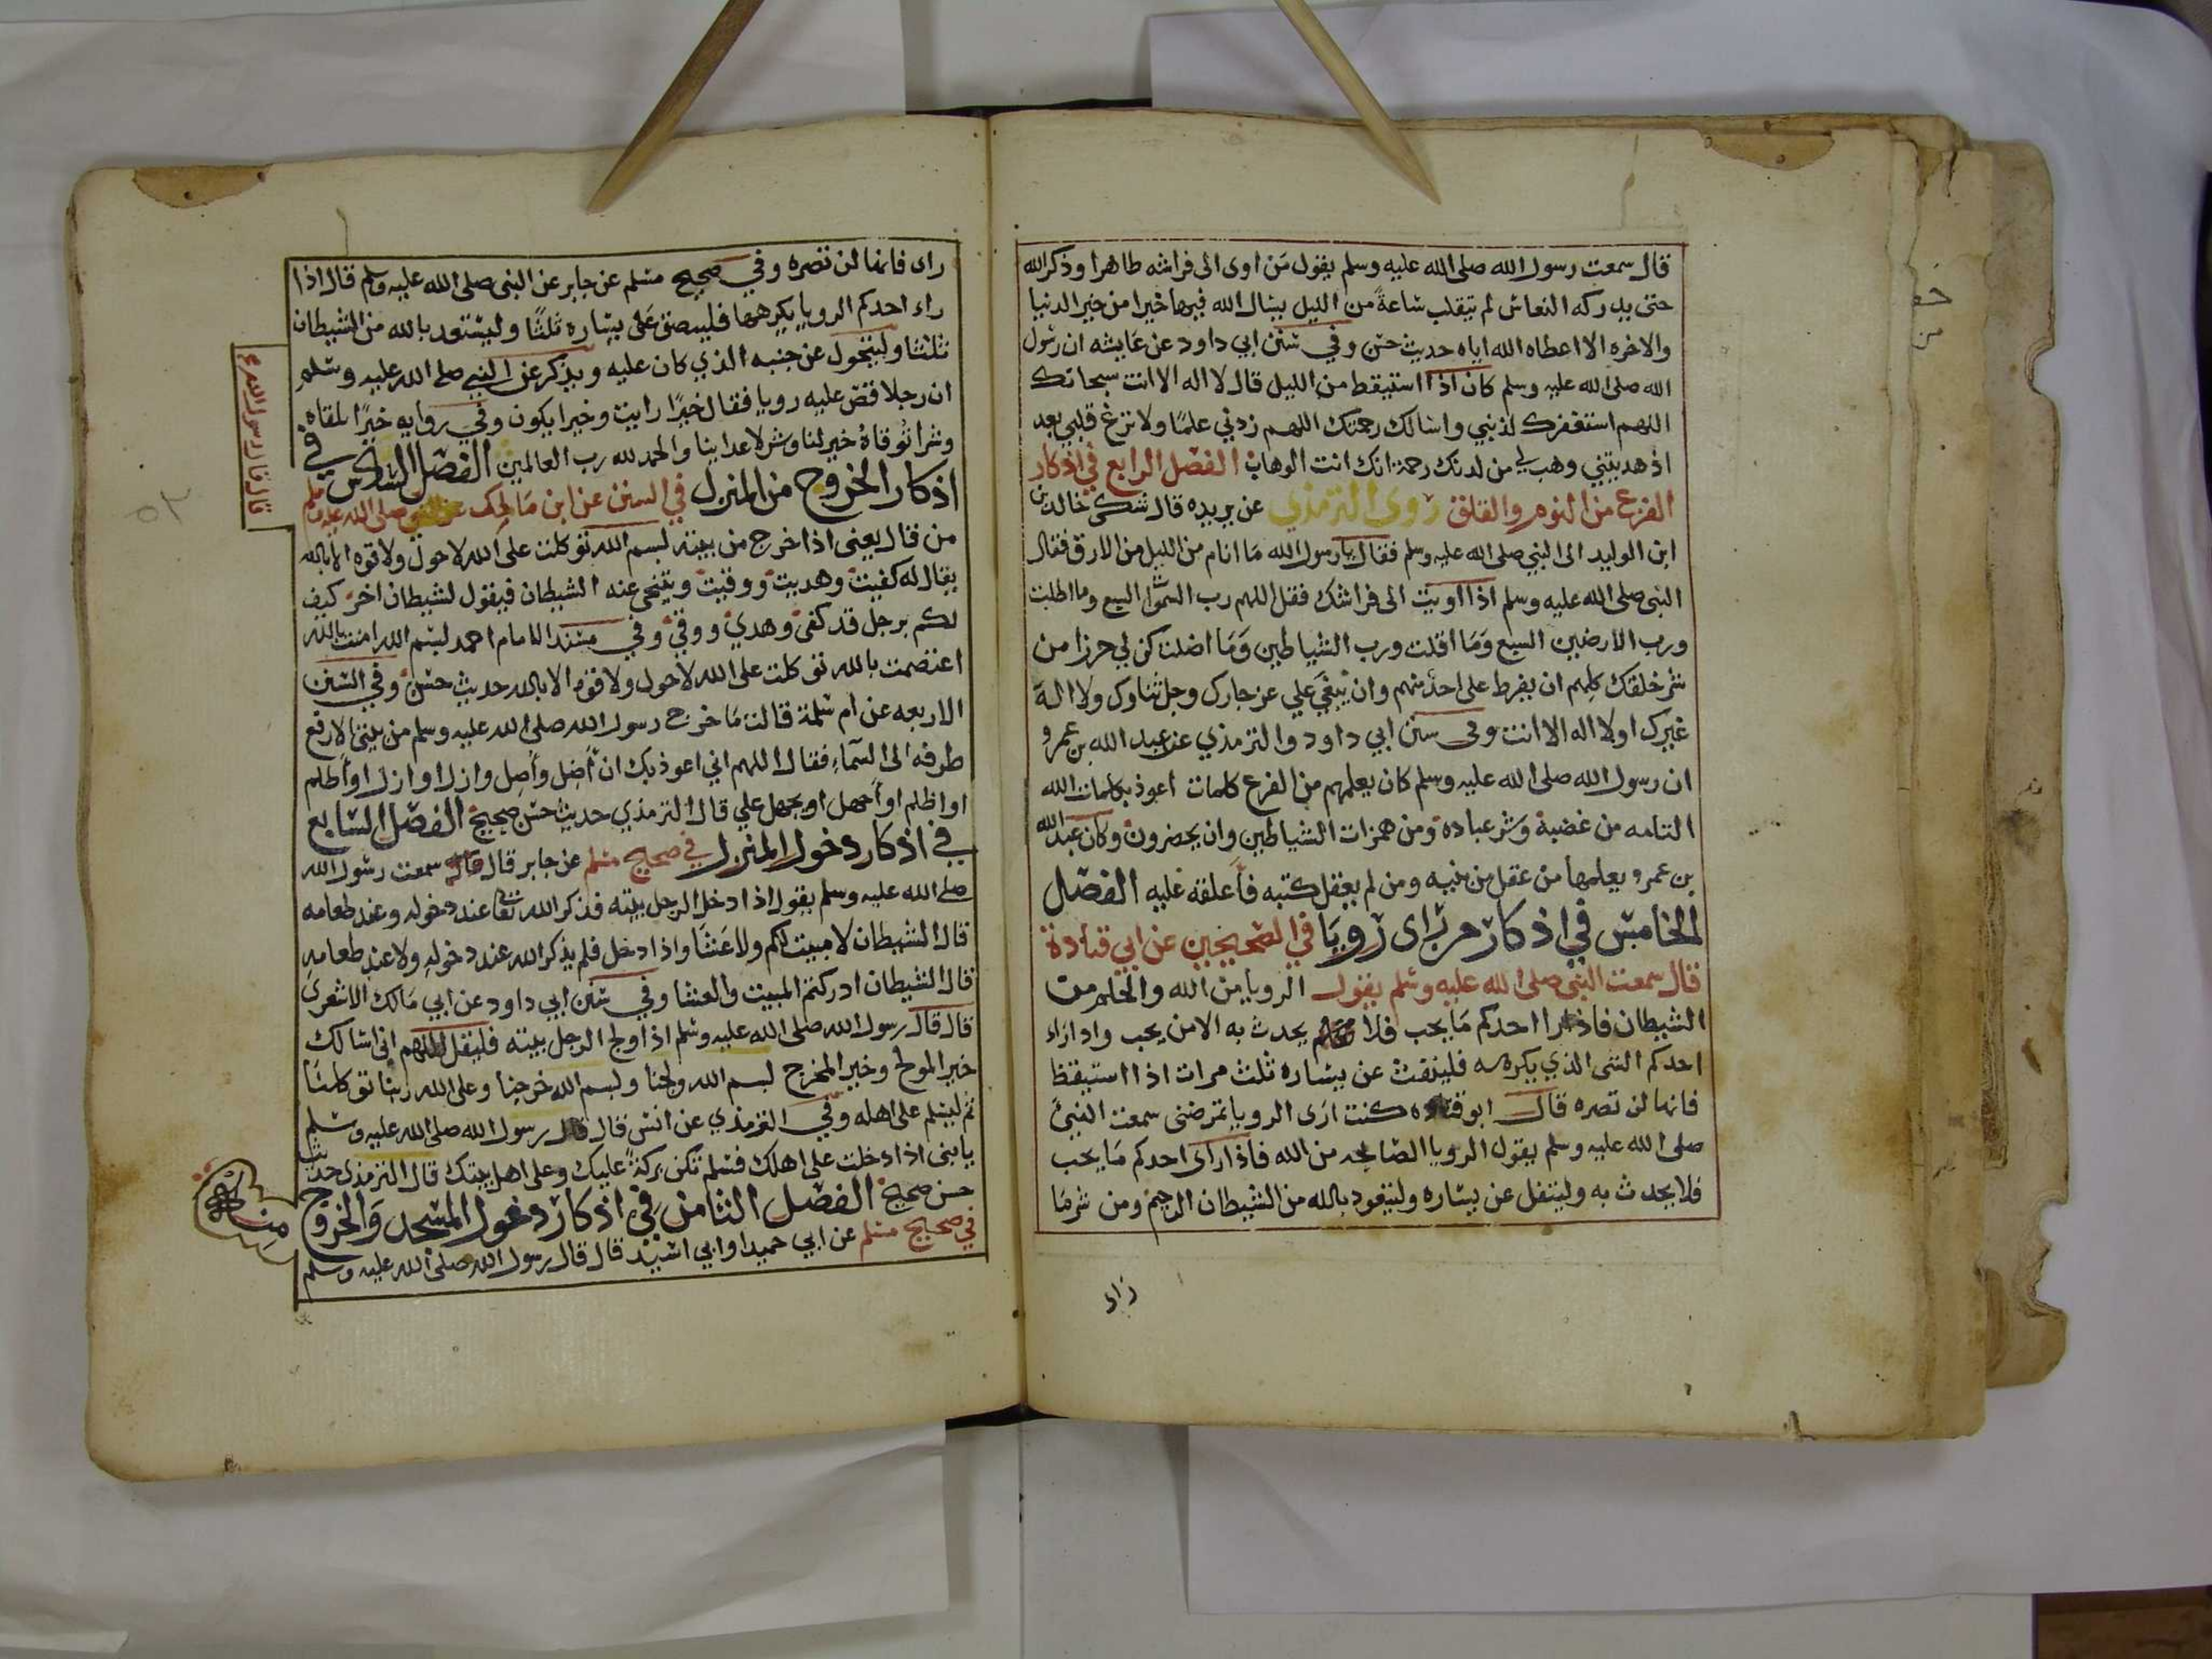 قال سمعت رسول الله صلى الله عليه وسلم يقول من اوى الى فراشه طاهرا وذكر الله
حتى يدركه النعاس لم يتقلب ساعة من الليل يسال الله فيها خيرا من خير الدنيا
والاخره الا اعطاه الله اياه حديث حسن وفي سنن ابي داود عن عايشه ان رسول
الله صلى الله عليه وسلم كان اذا استيقظ من الليل قال لا اله الا انت سبحانك
اللهم استغفرك لذنبي واسالك رحمتك اللهم زدني علما ولا تزغ قلبي بعد
اذ هديتني وهب لي من لدنك رحمة انك انت الوهاب الفصل الرابع في اذكار
الفزع من النوم والقلق روى الترمذي عن بريده قال شكى خالد بن
ابن الوليد الى النبي صلى الله عليه وسلم فقال يا رسول الله ما انام من الليل من الارق فقال
النبي صلى الله عليه وسلم اذا اويت الى فراشك فقل اللهم رب السموات السبع وما اظلت
ورب الارضين السبع وما اقلت ورب الشياطين وما اضلت كن لي حرزا من
شر خلقك كلهم ان يفرط على احد منهم وان يبغي علي عز جارك وجل ثناوك ولا اله
غيرك او لا اله الا انت وفى سنن ابي داود والترمذي عن عبد الله بن عمرو
ان رسول الله صلى الله عليه وسلم كان يعلمهم من الفزع كلمات اعوذ بكلمات الله
التامه من غضبه وشر عباده ومن همزات الشياطين وان يحضرون وكان عبد الله
بن عمرو يعلمها من عقل من بنيه ومن لم يعقل كتبه فأعلقه عليه الفصل
الخامس في اذكار من راى رويا في الصحيحين عن ابي قتادة
قال سمعت النبي صلى الله عليه وسلم يقول الرويا من الله والحلم من
الشيطان فاذا را احدكم ما يحب فلا يحدث به الا من يحب واذا راء
احدكم الشى الذي يكرهه فلينفث عن يساره ثلث مرات اذا استيقظ
فانها لن تضره قال ابو قتاده كنت ارى الرويا تمرضنى سمعت النبي
صلى الله عليه وسلم يقول الرويا الصالحه من الله فاذا راى احدكم ما يحب
فلا يحدث به وليتفل عن يساره وليتعوذ بالله من الشيطان الرجيم ومن شر ما
راى
راى فانها لن تضره وفي صحيح مسلم عن جابر عن النبي صلى الله عليه وسلم قال اذا
راء احدكم الرويا يكرهها فليبصق على يساره ثلثا وليستعذ بالله من الشيطان
ثلثا وليتحول عن جنبه الذي كان عليه ويذكر عن النبي صلى الله عليه وسلم
ان رجلا قص عليه رويا فقال خيرا رايت وخيرا يكون وفي روايه خيرا تلقاه
وشرا توقاه خير لنا وشر لاعداينا والحمد لله رب العالمين الفصل السادس في
اذكار الخروج من المنزل في السنن عن ابن مالك عن النبي صلى الله عليه وسلم
من قال يعنى اذا خرج من بيته لبسم الله توكلت على الله لا حول ولا قوه الا بالله
يقال له كفيت وهديت ووقيت ويتنحى عنه الشيطان فيقول لشيطان اخر كيف
لكم برجل قد كفى وهدي ووقي وفي مسند الامام احمد لبسم الله امنت بالله
اعتصمت بالله توكلت على الله لا حول ولا قوه الا بالله حديث حسن وفي السنن
الاربعه عن ام سلمة قالت ما خرج رسول الله صلى الله عليه وسلم من بيتى الا رفع
طرفه الى السماء فقال اللهم اني اعوذ بك ان أضل وأصل وازل او ازل او أظلم
او اظلم او أجهل او يجهل علي قال الترمذي حديث حسن صحيح الفصل السابع
في اذكار دخول المنزل في صحيح مسلم عن جابر قال سمعت رسول الله
صلى الله عليه وسلم يقول اذا دخل الرجل بيته فذكر الله تعالى عند دخوله وعند طعامه
قال الشيطان لا مبيت لكم ولا عشا واذا دخل فلم يذكر الله عند دخوله ولا عند طعامه
قال الشيطان ادركتم المبيت والعشا وفي سنن ابي داود عن ابي مالك الاشعري
قال قال رسول الله صلى الله عليه وسلم اذا ولج الرجل بيته فليقل اللهم انى اسالك
خير المولج وخير المخرج لبسم الله ولجنا ولبسم الله خرجنا وعلى الله ربنا توكلنا
ثم ليسلم على اهله وفي الترمذي عن انس قال قال رسول الله صلى الله عليه وسلم
يا بنى اذا دخلت على اهلك فسلم تكن بركة عليك وعلى اهل بيتك قال الترمذي حديث
حسن صحيح الفصل الثامن في اذكار دخول المسجد والخروج منه
في صحيح مسلم عن ابي حميد او ابي اسيد قال قال رسول الله صلى الله عليه وسلم
قال قال رسول الله
٥٣